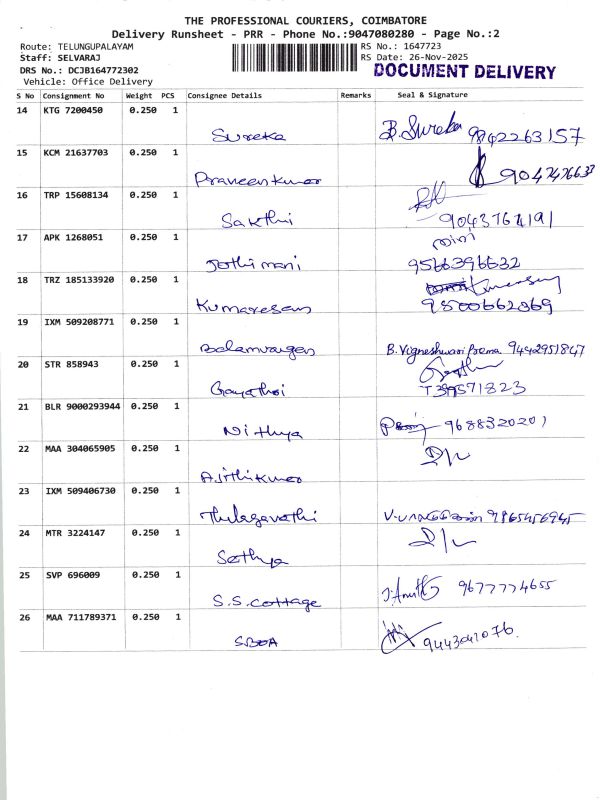 THE PROFESSIONAL COURIERS, COIMBATORE
Delivery Runsheet - PRR - Phone No.:9047080280 - Page No.:2
Route: TELUNGUPALAYAM RS No.: 1647723
Staff: SELVARAJ RS Date: 26-Nov-2025
DRS No.: DCJB164772302 DOCUMENT DELIVERY
Vehicle: Office Delivery
S No Consignment No Weight PCS Consignee Details Remarks Seal & Signature
14 KTG 7200450 0.250 1
Sureka B. Sureka 9842263157
15 KCM 21637703 0.250 1
Praveenkumar
16 TRP 15608134 0.250 1
Sakthi
17 APK 1268051 0.250 1
Jothi mani 9566396632
18 TRZ 185133920 0.250 1
Kumaresan 9800662369
19 IXM 509208771 0.250 1
Balamurugan B. Vigneshwari Prema 9442951847
20 STR 858943 0.250 1
Gayathri
21 BLR 9000293944 0.250 1
Nithya 9688320201
22 MAA 304065905 0.250 1
D/L
Ajithkumar
23 IXM 509406730 0.250 1
Thulagavathi 9865456945
24 MTR 3224147 0.250 1
D/L
Sathya
25 SVP 696009 0.250 1
S.S. Cottage 9677774655
26 MAA 711789371 0.250 1
9443041076.